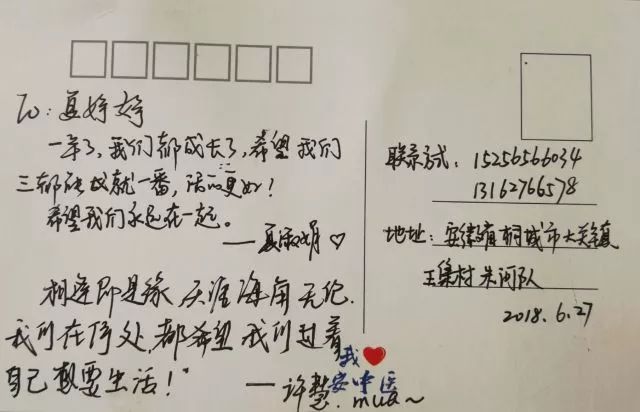 To: 夏婷婷
一年了,我们都成长了,希望我们
三都能成就一番,活的更好!
希望我们永远在一起。
——夏 月♡
相逢即是缘 天涯海角 无论
我们在何处,都希望 我们过着
自己想要生活!"
——许慧. mua~
我❤
安中医
联系方式: 15256566034
13162766578
地址: 安徽省桐城市大关镇
王集村 朱河队
2018.6.27